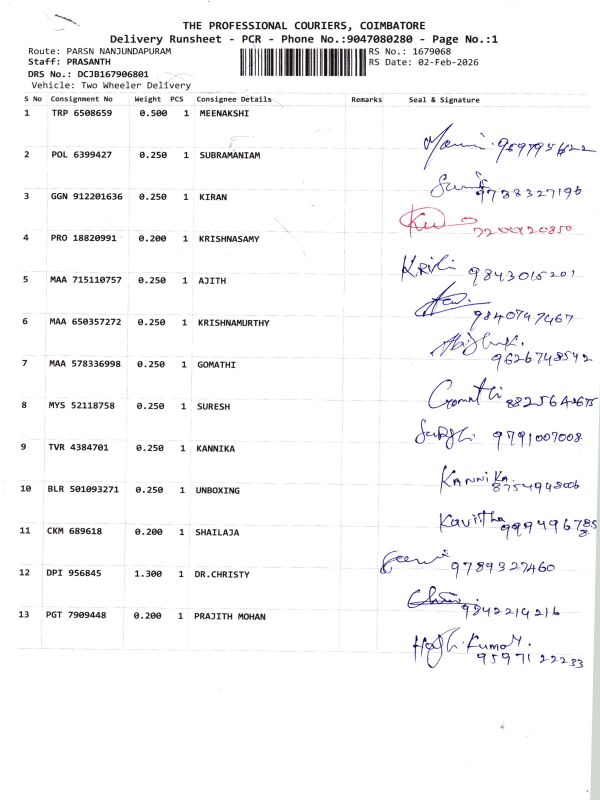 THE PROFESSIONAL COURIERS, COIMBATORE
Delivery Runsheet - PCR - Phone No.:9047080280 - Page No.:1
Route: PARSN NANJUNDAPURAM
RS No.: 1679068
Staff: PRASANTH
RS Date: 02-Feb-2026
DRS No.: DCJB167906801
Vehicle: Two Wheeler Delivery
S No Consignment No Weight PCS Consignee Details Remarks Seal & Signature
1 TRP 6508659 0.500 1 MEENAKSHI
2 POL 6399427 0.250 1 SUBRAMANIAM
3 GGN 912201636 0.250 1 KIRAN
9788327196
4 PRO 18820991 0.200 1 KRISHNASAMY
5 MAA 715110757 0.250 1 AJITH
9843015201
6 MAA 650357272 0.250 1 KRISHNAMURTHY
9840747467
7 MAA 578336998 0.250 1 GOMATHI
9626748542
8 MYS 52118758 0.250 1 SURESH
Gomathi
9 TVR 4384701 0.250 1 KANNIKA
9791007008
10 BLR 501093271 0.250 1 UNBOXING
KANNIKA
11 CKM 689618 0.200 1 SHAILAJA
Kavitha
12 DPI 956845 1.300 1 DR.CHRISTY
9789327460
13 PGT 7909448 0.200 1 PRAJITH MOHAN
9842214216
Kumar.
9597122233